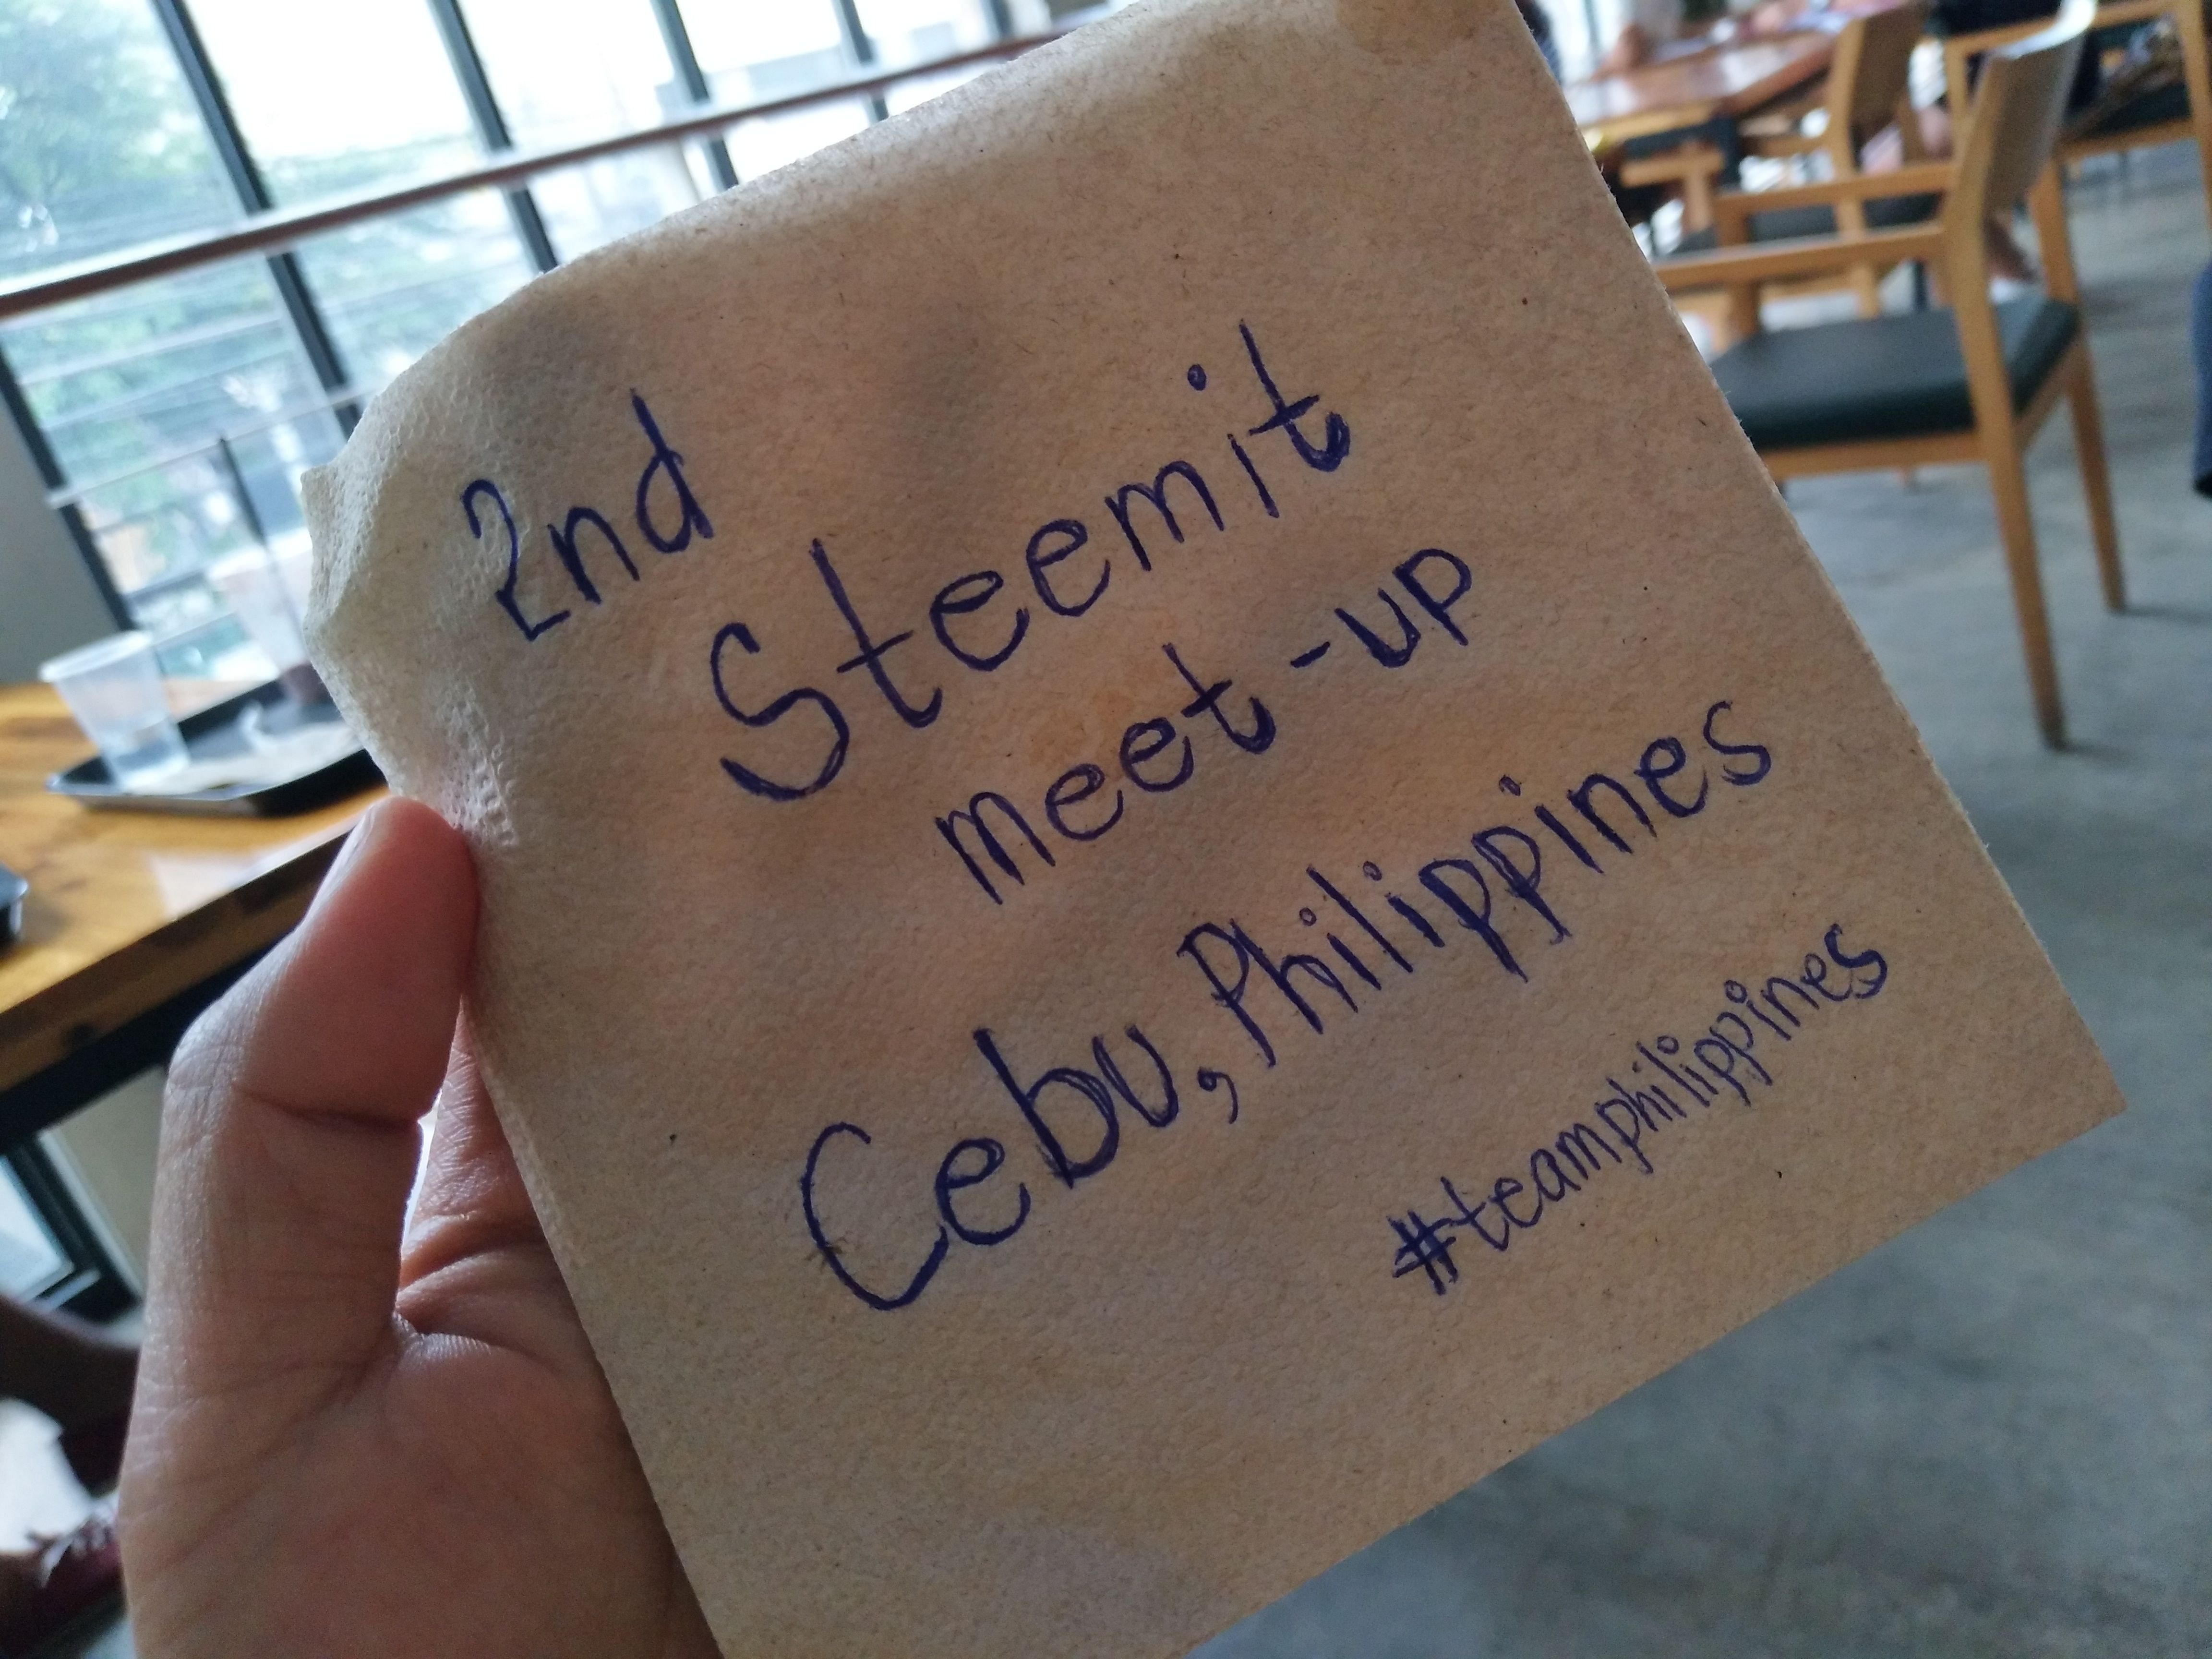 2nd
Steemit
meet-up
Cebu, Philippines
#teamphilippines